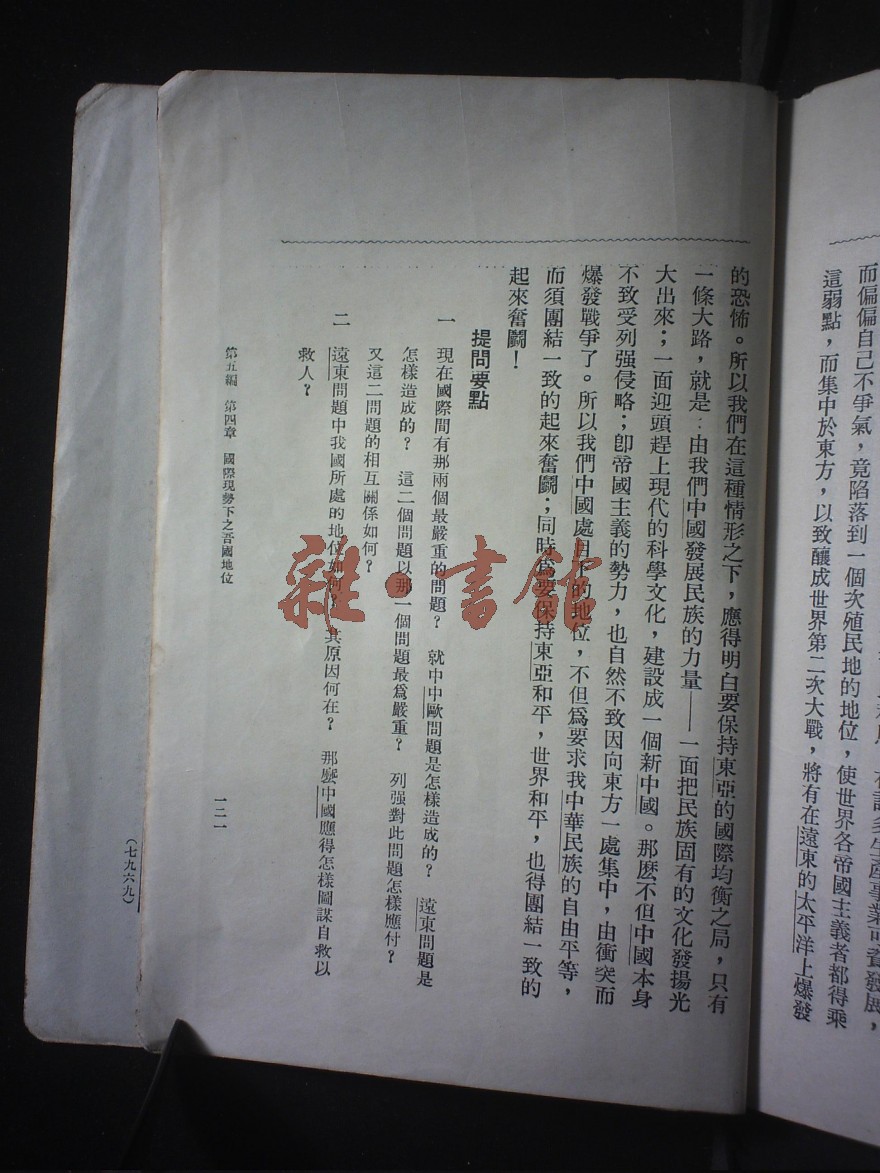 而偏偏自己不爭氣，竟陷落到一個次殖民地的地位，使世界各帝國主義者都得乘
這弱點，而集中於東方，以致釀成世界第二次大戰，將有在遠東的太平洋上爆發
的恐怖。所以我們在這種情形之下，應得明白要保持東亞的國際均衡之局，只有
一條大路，就是：由我們中國發展民族的力量——一面把民族固有的文化發揚光
大出來；一面迎頭趕上現代的科學文化，建設成一個新中國。那麼不但中國本身
不致受列强侵略；卽帝國主義的勢力，也自然不致因向東方一處集中，由衝突而
爆發戰爭了。所以我們中國處目下的地位，不但爲要求我中華民族的自由平等，
而須團結一致的起來奮鬬；同時爲要保持東亞和平，世界和平，也得團結一致的
起來奮鬬！
提問要點
一　現在國際間有那兩個最嚴重的問題？　就中中歐問題是怎樣造成的？　遠東問題是
怎樣造成的？　這二個問題以那一個問題最爲嚴重？　列强對此問題怎樣應付？
又這二問題的相互關係如何？
二　遠東問題中我國所處的地位如何？　其原因何在？　那麼中國應得怎樣圖謀自救以
救人？
第五編　第四章　國際現勢下之吾國地位
一二一
（七九六九）
雜·書館